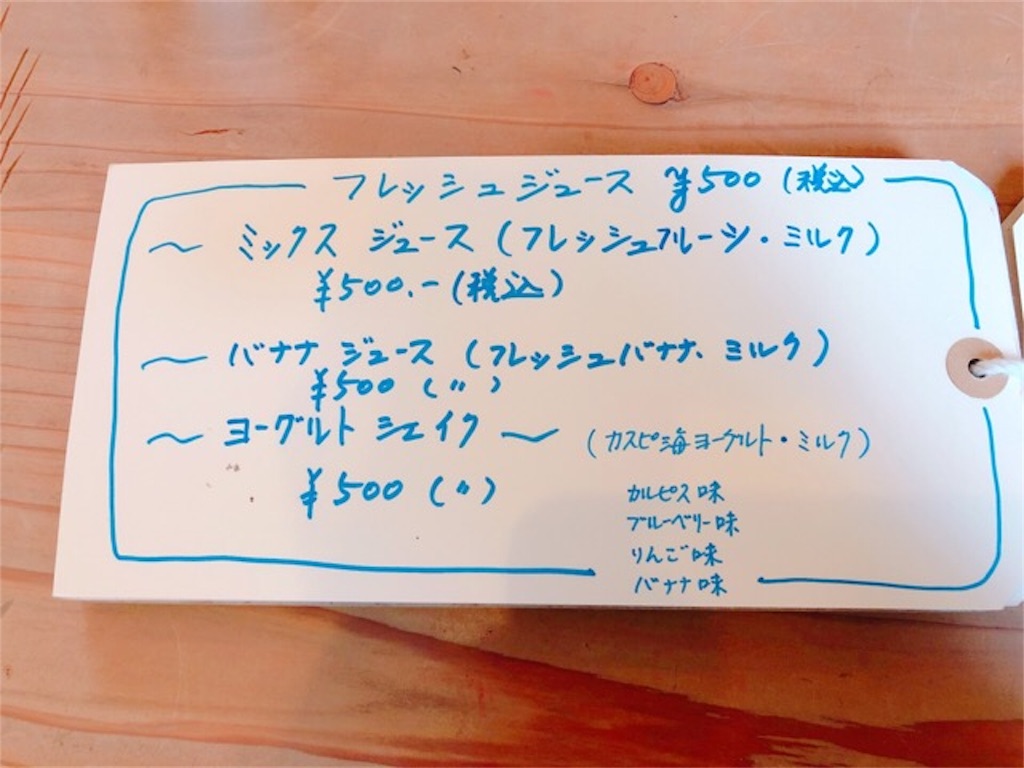 フレッシュジュース ¥500 (税込)
〜 ミックス ジュース (フレッシュフルーツ・ミルク)
¥500.-(税込)
〜 バナナ ジュース (フレッシュバナナ、ミルク)
¥500 (〃)
〜 ヨーグルト シェイク 〜 (カスピ海ヨーグルト・ミルク)
¥500 (〃)
カルピス味
ブルーベリー味
りんご味
バナナ味